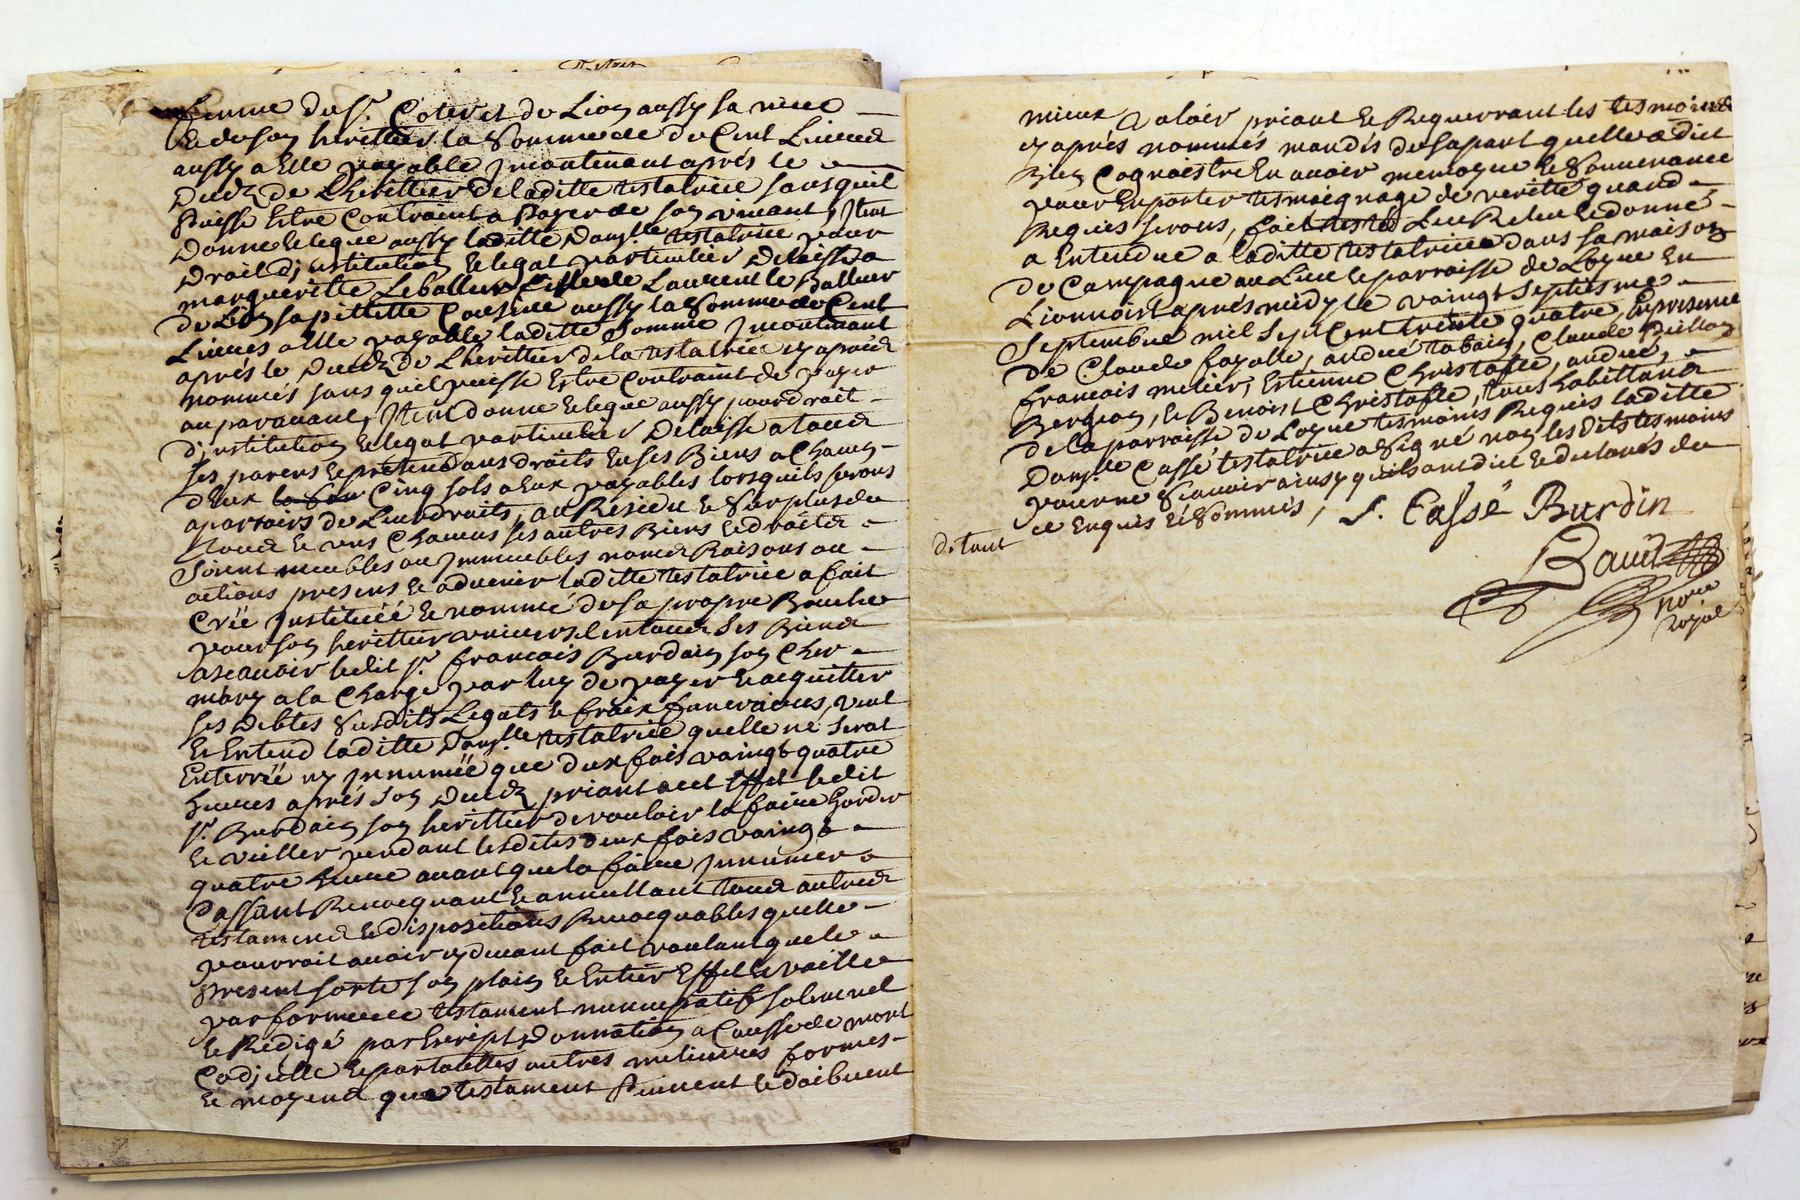 femme du Sr. Coteret de Lion aussy sa niece
& de son heritier la Somme de de Cent Livres
aussy a Elle payable Jncontinant aprés le
Deceds de Lheritier de laditte testatrice sans quil
Puisse Estre Contraint a Payer de son vivant, Jtem
Donne & legue aussy laditte Damslle testatrice pour
Droit d'jnstitution & legat particulier Delaisse a
margueritte Leballeur fille de Laurent le Balleur
de Lion sa pettitte Cousine aussy la Somme de Cent
Livres a Elle payable laditte Somme Jncontinant
aprés le Deceds de Lherittier de la testatrice cy aprés
nommés sans quil puisse Estre Contraint de payer
auparavant, Jtem donne & legue aussy pour droit
d'jnstitution & legat particulier Delaisse a tous
ses parens & pretendans droits En ses Biens a Chacun
d'Eux Cinq sols a Eux payables lorsquils seront
aparroirs de Leur droits, au Residu & Surplus de
tous & uns Chacuns ses autres Biens & droits
Soient meubles ou Jmmeubles noms Raisons ou
actions presens & advenir laditte testatrice a fait
Créé Jnstitüéé & nommé de sa propre Bouche
pour son herittier universel en tous Ses Biens
ascavoir ledit Sr. francois Burdain son Cher
mary a la Charge par luy de payer & acquitter
ses Debtes Susdits Legats & fraix funeraires, veut
& Entend laditte Damslle testatrice quelle ne Serat
Enterréé ny Jnnuméé que deux fois vaingt quatre
heures aprés son Deceds priant a cet Effet ledit
Sr. Burdain son herittier de vouloir la faire Garder
& vieller pendant lesdites deux fois vaingt
quatre heure avant que la faire Jnnumer
Cassant Revocquant & annullant tous autres
testamens & dispositions Revocquables quelle
pourroit avoir cy devant fait voulant que le
present sorte son plain & Entier Effet & vaille
par forme de testament nuncupatif solemnel
& Redigé par Escript, Donnation a Causse de mort
Codjcille & par toutes autres melieures formes
& moyens que testament Peuvent & doibvent
mieux valoir priant & Requerrant les tesmoins
cy aprés nommés mandés de sa part quelle a dict
Bien Cognoistre En avoir memoyre & Souvenance
pour En porter tesmoignage de verité quand
Requis seront, fait Leu Releu & donné
a Entendre a laditte testatrice dans sa maison
de Campagne au Lieu & parroisse de Loyse En
Lionnois aprés midy le vaingt Septiesme
Septembre mil Sept Cent trente quatre, En presence
de Claude fayolle, andré tabain, Claude Billon
francois metier, Estienne Christofle, andré
Bergeon, & Benoist Christofle, tous habittans
de la parroisse de Loyse tesmoins Requis laditte
Damslle Cassé testatrice a Signé non lesdits tesmoins
pour ne Scavoir ainsy quils ont dict & declarés de
de tout ce Enquis & Sommés, S. Cassé Burdin
Baud
nore
royal